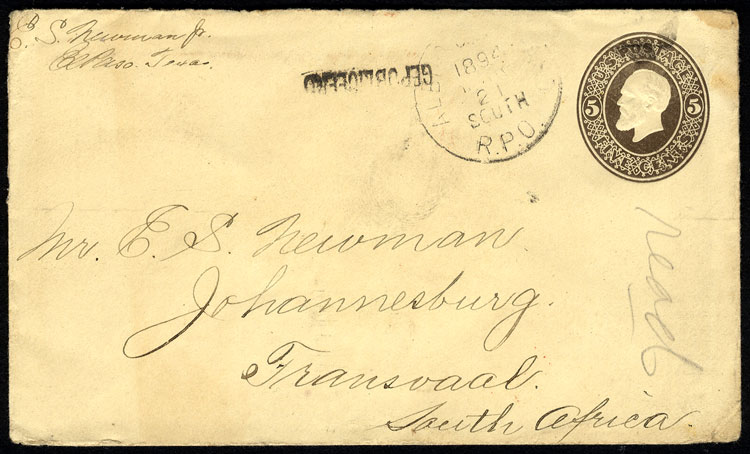 E. S. Newman Jr.
El Paso. Texas.
GEPUBLICEERD
1894
21
SOUTH
R.P.O.
5
5
Mr. E. S. Newman.
Johannesburg.
Transvaal.
South Africa.